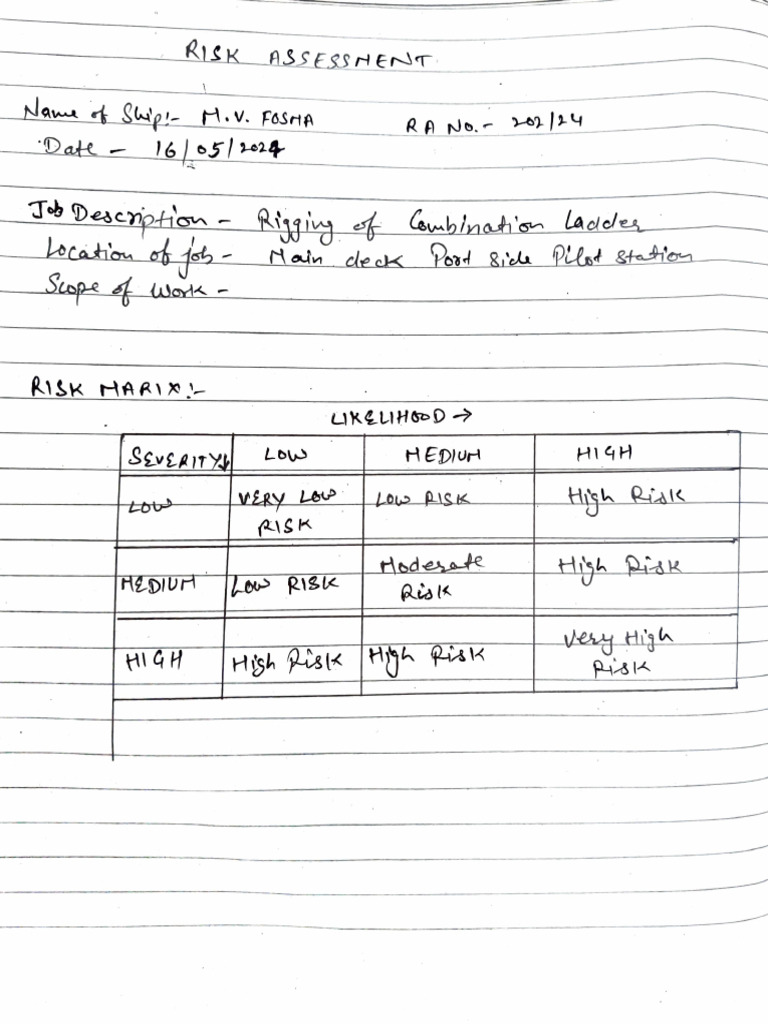 RISK ASSESSMENT
Name of Ship:- M.V. FOSMA RA NO.- 202/24
Date - 16/05/2024
Job Description - Rigging of Combination Ladder
Location of job - Main deck Port side Pilot station
Scope of work -
RISK MARIX:-
LIKELIHOOD →
SEVERITY↓ LOW MEDIUM HIGH
LOW VERY LOW RISK LOW RISK High Risk
MEDIUM LOW RISK Moderate Risk High Risk
HIGH High Risk High Risk Very High Risk